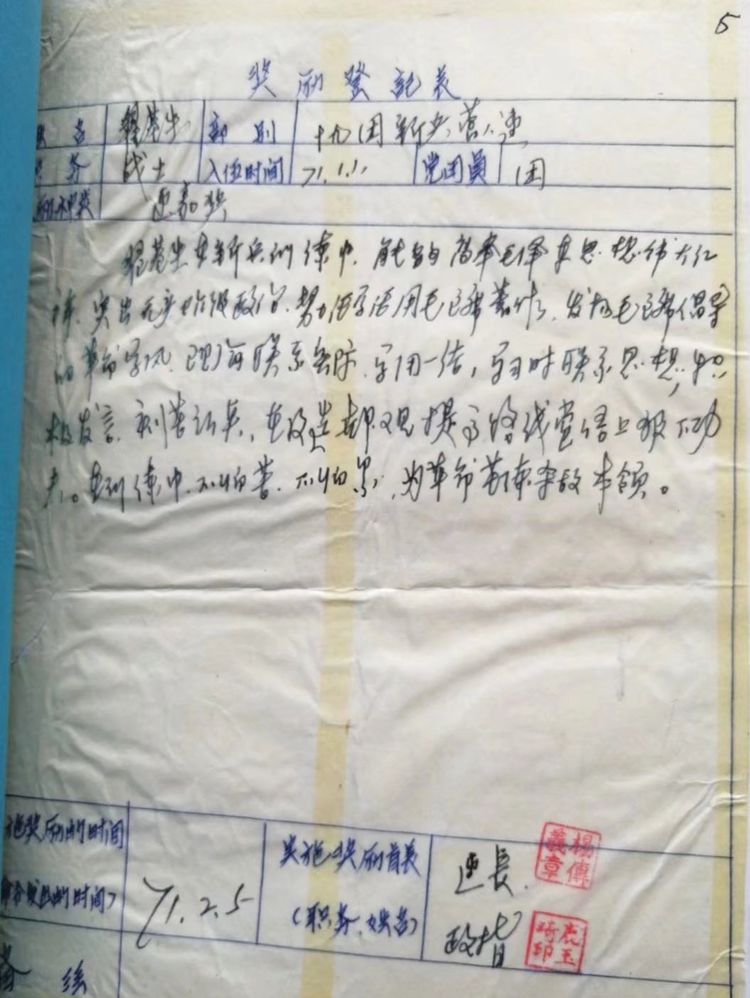 5
奖励登记表
姓名 部别 十九团新兵营八连
职务 战士 入伍时间 71.1.1 党团员 团
奖励种类 连嘉奖
在新兵训练中，能够高举毛泽东思想伟大红
旗，突出无产阶级政治，努力活学活用毛主席著作，发扬毛主席倡导
的革命学风，理论联系实际，学用一结，学习时联系思想，积
极发言，刻苦认真，在改造世界观提高路线觉悟上狠下功
夫。在训练中，不怕苦，不怕累，为革命苦练杀敌本领。
施奖励的时间
的时间) 71.2.5
实施奖励首长
(职务、姓名)
连长 楊傳義章
政指 鹿玉琦印
备